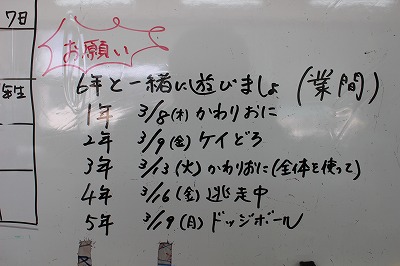 7日
年生
お願い
6年と一緒に遊びましょ(業間)
1年 3/8(木) かわりおに
2年 3/9(金) ケイどろ
3年 3/13(火) かわりおに(全体を使って)
4年 3/16(金) 逃走中
5年 3/19(月) ドッジボール